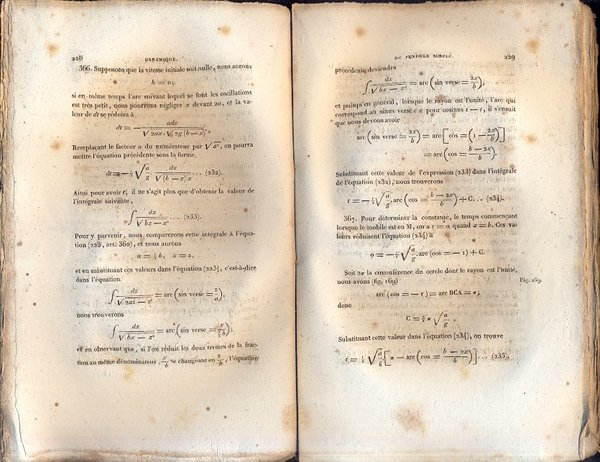 228 DYNAMIQUE.
366. Supposons que la vitesse initiale soit nulle, nous aurons
h = 0;
si en même temps l'arc suivant lequel se font les oscillations
est très petit, nous pourrons négliger x devant 2a, et la va-
leur de dt se réduira à
dt = − adx / √2ax . √2g (b − x)
Remplaçant le facteur a du numérateur par √a², on pourra
mettre l'équation précédente sous la forme,
dt = − ½ √(a/g) . dx / √(b − x) x ... (232).
Ainsi pour avoir t, il ne s'agit plus que d'obtenir la valeur de
l'intégrale suivante,
∫ dx / √bx − x² ... (233).
Pour y parvenir, nous comparerons cette intégrale à l'équa-
tion (223, art. 360), et nous aurons
a = ½ b, z = x,
et en substituant ces valeurs dans l'équation (223), c'est-à-dire
dans l'équation
∫ dz / √2az − z² = arc (sin verse = z/a),
nous trouverons
∫ dx / √bx − x² = arc (sin verse = x/½b);
et en observant que, si l'on réduit les deux termes de la frac-
tion au même dénominateur, x/½b se changeant en 2x/b, l'équation
DU PENDULE SIMPLE. 229
précédente deviendra
∫ dx / √bx − x² = arc (sin verse = 2x/b);
et puisqu'en général, lorsque le rayon est l'unité, l'arc qui
correspond au sinus verse v a pour cosinus 1 − v, il s'ensuit
que nous devons avoir
arc (sin verse = 2x/b) = arc [cos = (1 − 2x/b)]
= arc (cos = b − 2x / b).
Substituant cette valeur de l'expression (233) dans l'intégrale
de l'équation (232), nous trouverons
t = − ½ √(a/g) . arc (cos = b − 2x / b) + C... (234).
367. Pour déterminer la constante, le temps commençant
lorsque le mobile est en M, on a t = 0 quand x = b. Ces va-
leurs réduisent l'équation (234) à
0 = − ½ √(a/g) . arc (cos = − 1) + C.
Soit 2π la circonférence du cercle dont le rayon est l'unité,
nous avons (fig. 169) Fig. 169.
arc (cos = − 1) = arc BCA = π;
donc
C = ½ π √(a/g) .
Substituant cette valeur dans l'équation (234), on trouve
t = ½ √(a/g) [π − arc (cos = b − 2x / b)] ... (235),